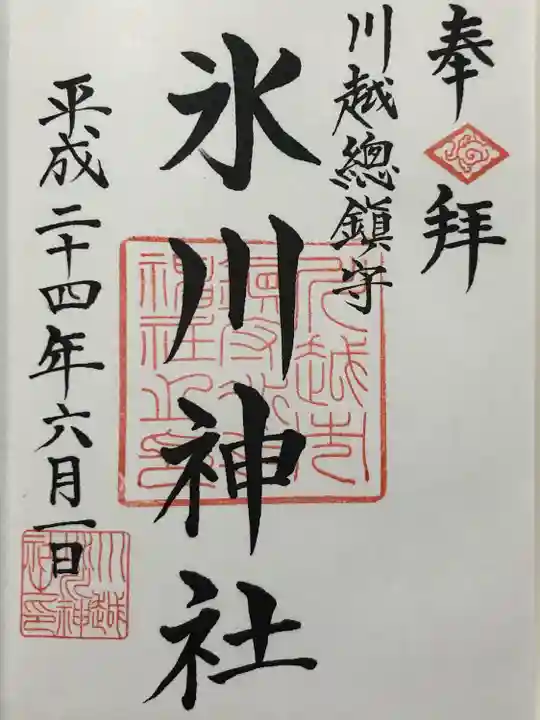 奉拝
川越總鎮守
氷川神社
平成二十四年六月一日